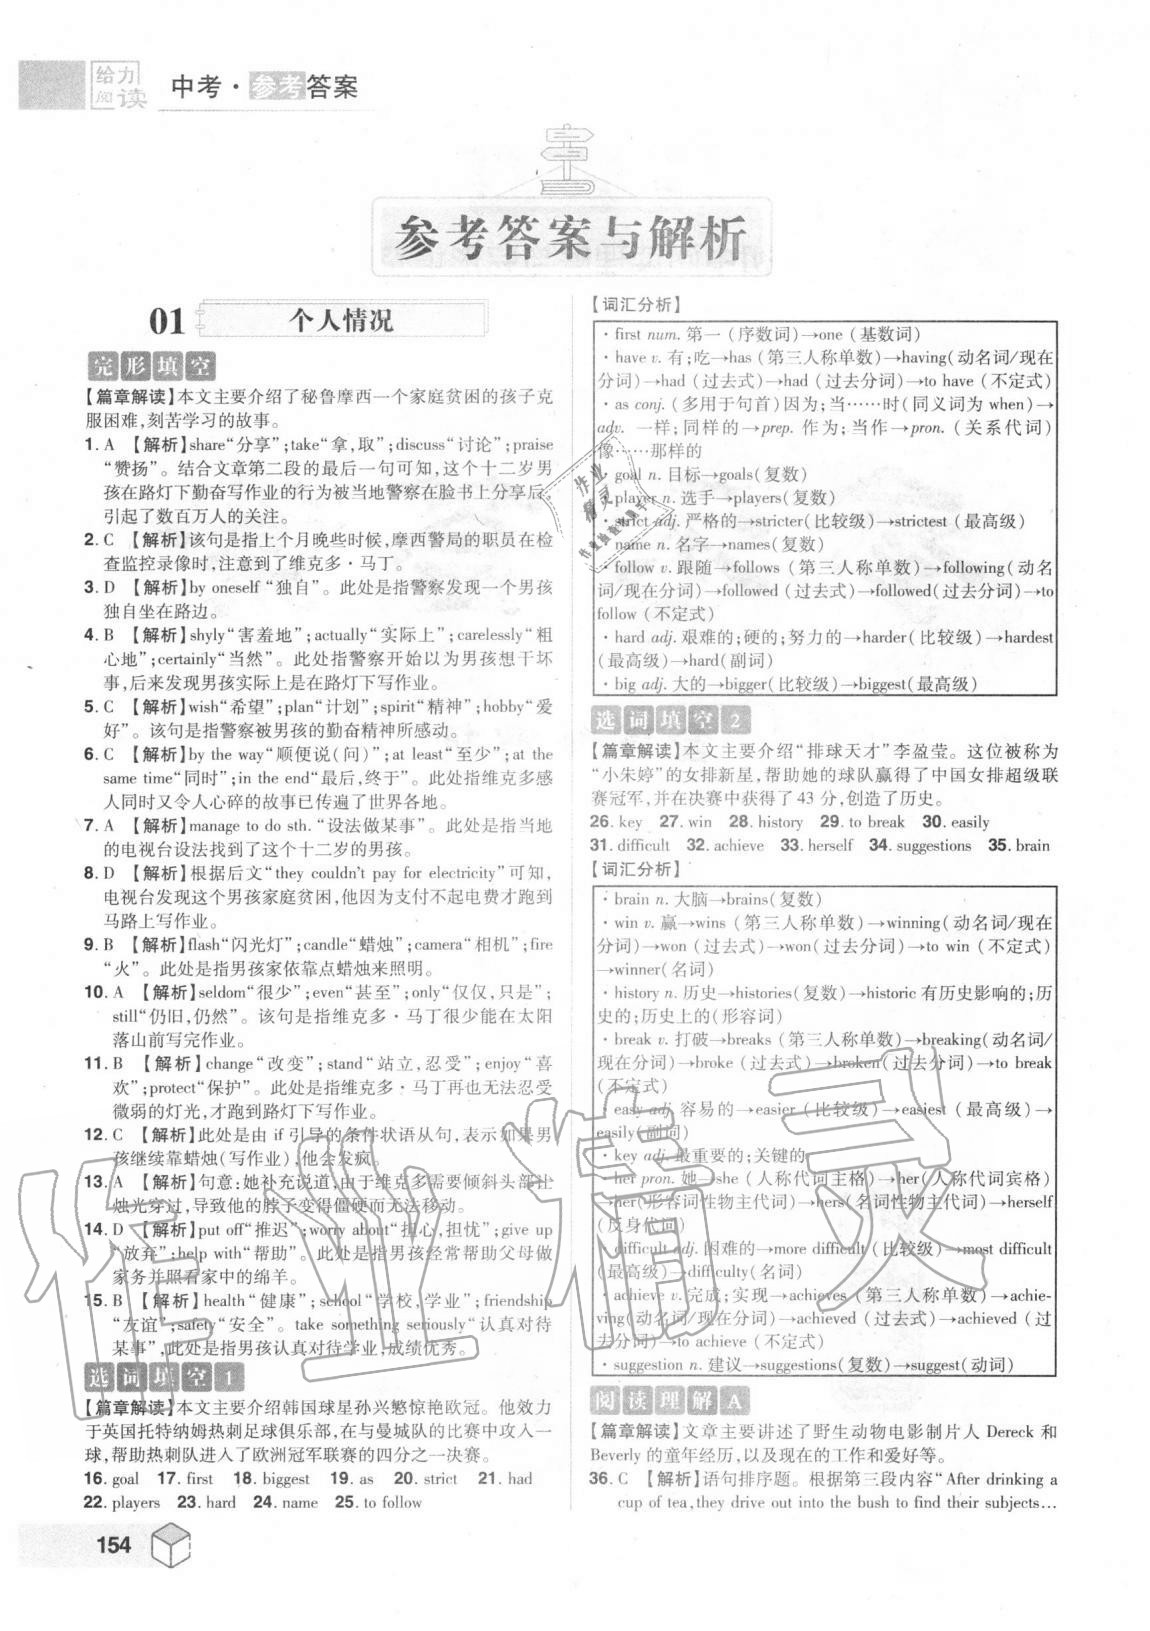 给力
阅读
中考·参考答案
参考答案与解析
01 个人情况
完形填空
【篇章解读】本文主要介绍了秘鲁摩西一个家庭贫困的孩子克
服困难,刻苦学习的故事。
1. A 【解析】share“分享”;take“拿,取”;discuss“讨论”;praise
“赞扬”。结合文章第二段的最后一句可知,这个十二岁男
孩在路灯下勤奋写作业的行为被当地警察在脸书上分享后,
引起了数百万人的关注。
2. C 【解析】该句是指上个月晚些时候,摩西警局的职员在检
查监控录像时,注意到了维克多·马丁。
3. D 【解析】by oneself “独自”。此处是指警察发现一个男孩
独自坐在路边。
4. B 【解析】shyly“害羞地”;actually“实际上”;carelessly“粗
心地”;certainly“当然”。此处指警察开始以为男孩想干坏
事,后来发现男孩实际上是在路灯下写作业。
5. C 【解析】wish“希望”;plan“计划”;spirit“精神”;hobby“爱
好”。该句是指警察被男孩的勤奋精神所感动。
6. C 【解析】by the way“顺便说(问)”;at least“至少”;at the
same time“同时”;in the end“最后,终于”。此处指维克多感
人同时又令人心碎的故事已传遍了世界各地。
7. A 【解析】manage to do sth. “设法做某事”。此处是指当地
的电视台设法找到了这个十二岁的男孩。
8. D 【解析】根据后文“they couldn't pay for electricity”可知,
电视台发现这个男孩家庭贫困,他因为支付不起电费才跑到
马路上写作业。
9. B 【解析】flash“闪光灯”;candle“蜡烛”;camera“相机”;fire
“火”。此处是指男孩家依靠点蜡烛来照明。
10. A 【解析】seldom“很少”;even“甚至”;only“仅仅,只是”;
still“仍旧,仍然”。该句是指维克多·马丁很少能在太阳
落山前写完作业。
11. B 【解析】change“改变”;stand“站立,忍受”;enjoy“喜
欢”;protect“保护”。此处是指维克多·马丁再也无法忍受
微弱的灯光,才跑到路灯下写作业。
12. C 【解析】此处是由 if 引导的条件状语从句,表示如果男
孩继续靠蜡烛(写作业),他会发疯。
13. A 【解析】句意:她补充说道,由于维克多需要倾斜头部让
烛光穿过,导致他的脖子变得僵硬而无法移动。
14. D 【解析】put off“推迟”;worry about“担心,担忧”;give up
“放弃”;help with“帮助”。此处是指男孩经常帮助父母做
家务并照看家中的绵羊。
15. B 【解析】health“健康”;school“学校,学业”;friendship
“友谊”;safety“安全”。take something seriously“认真对待
某事”,此处是指男孩认真对待学业,成绩优秀。
选词填空1
【篇章解读】本文主要介绍韩国球星孙兴慜惊艳欧冠。他效力
于英国托特纳姆热刺足球俱乐部,在与曼城队的比赛中攻入一
球,帮助热刺队进入了欧洲冠军联赛的四分之一决赛。
16. goal 17. first 18. biggest 19. as 20. strict 21. had
22. players 23. hard 24. name 25. to follow
154
【词汇分析】
· first num. 第一(序数词)→one(基数词)
· have v. 有;吃→has(第三人称单数)→having(动名词/现在
分词)→had(过去式)→had(过去分词)→to have(不定式)
· as conj. (多用于句首)因为;当……时(同义词为 when)→
adv. 一样;同样的→prep. 作为;当作→pron. (关系代词)
像……那样的
· goal n. 目标→goals(复数)
· player n. 选手→players(复数)
· strict adj. 严格的→stricter(比较级)→strictest(最高级)
· name n. 名字→names(复数)
· follow v. 跟随→follows(第三人称单数)→following(动名
词/现在分词)→followed(过去式)→followed(过去分词)→to
follow(不定式)
· hard adj. 艰难的;硬的;努力的→harder(比较级)→hardest
(最高级)→hard(副词)
· big adj. 大的→bigger(比较级)→biggest(最高级)
选词填空2
【篇章解读】本文主要介绍“排球天才”李盈莹。这位被称为
“小朱婷”的女排新星,帮助她的球队赢得了中国女排超级联
赛冠军,并在决赛中获得了 43 分,创造了历史。
26. key 27. win 28. history 29. to break 30. easily
31. difficult 32. achieve 33. herself 34. suggestions 35. brain
【词汇分析】
· brain n. 大脑→brains(复数)
· win v. 赢→wins(第三人称单数)→winning(动名词/现在
分词)→won(过去式)→won(过去分词)→to win(不定式)
→winner(名词)
· history n. 历史→histories(复数)→historic 有历史影响的;历
史的;历史上的(形容词)
· break v. 打破→breaks(第三人称单数)→breaking(动名词/
现在分词)→broke(过去式)→broken(过去分词)→to break
(不定式)
· easy adj. 容易的→easier(比较级)→easiest(最高级)→
easily(副词)
· key adj. 最重要的;关键的
· her pron. 她→she(人称代词主格)→her(人称代词宾格)
→her(形容词性物主代词)→hers(名词性物主代词)→herself
(反身代词)
· difficult adj. 困难的→more difficult(比较级)→most difficult
(最高级)→difficulty(名词)
· achieve v. 完成;实现→achieves(第三人称单数)→achie-
ving(动名词/现在分词)→achieved(过去式)→achieved(过
去分词)→to achieve(不定式)
· suggestion n. 建议→suggestions(复数)→suggest(动词)
阅读理解A
【篇章解读】文章主要讲述了野生动物电影制片人 Dereck 和
Beverly 的童年经历,以及现在的工作和爱好等。
36. C 【解析】语句排序题。根据第三段内容“After drinking a
cup of tea,they drive out into the bush to find their subjects...
作业精灵